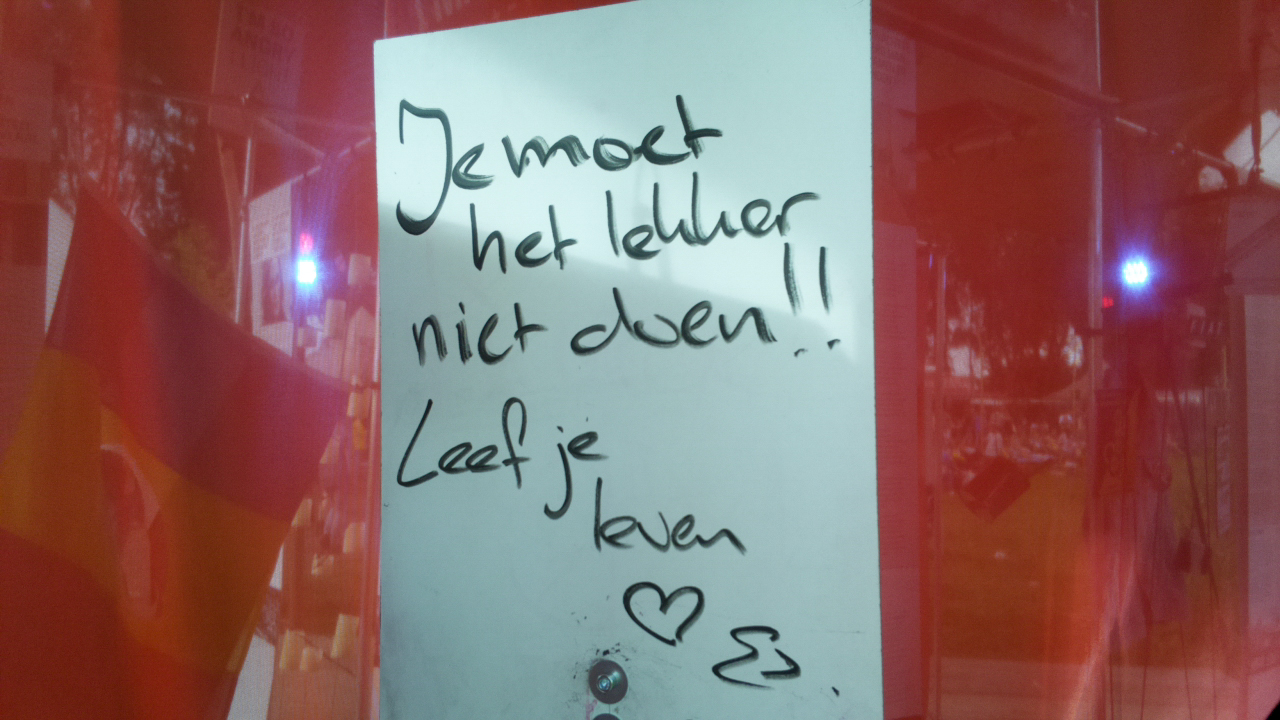 Je moet
het lekker
niet doen!!
Leef je
leven
♡ Es.